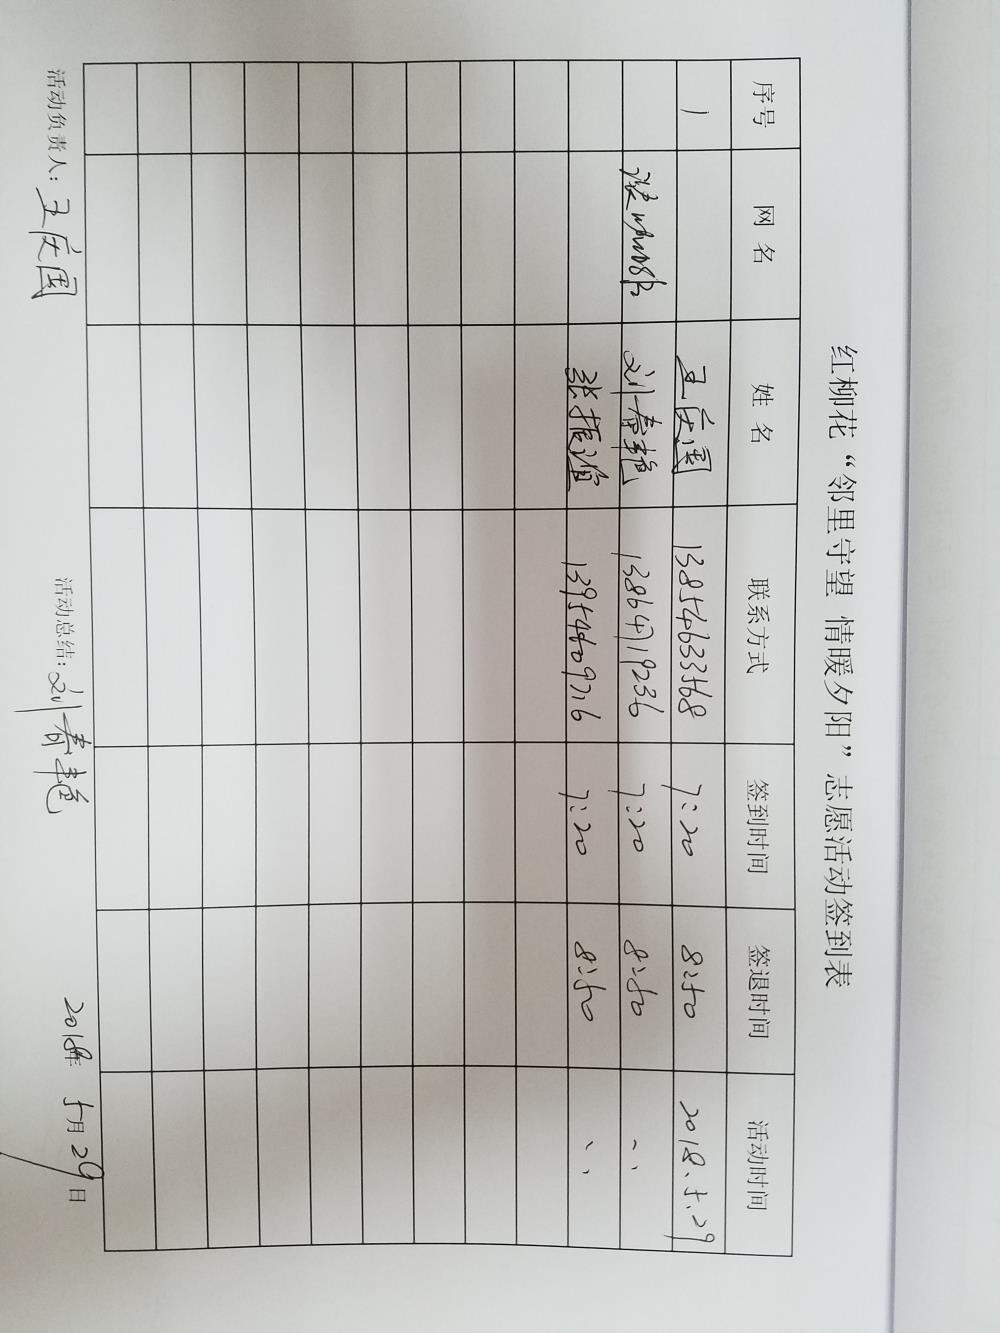 红柳花“邻里守望 情暖夕阳”志愿活动签到表
序号 网名 姓名 联系方式 签到时间 签退时间 活动时间
1 王庆国 13854633568 7:20 8:50 2018.5.29
刘春艳 13864719236 7:20 8:50 〃
张振 7:20 8:50 〃
活动负责人:王庆国 活动总结:刘春艳 2018年 5月29日